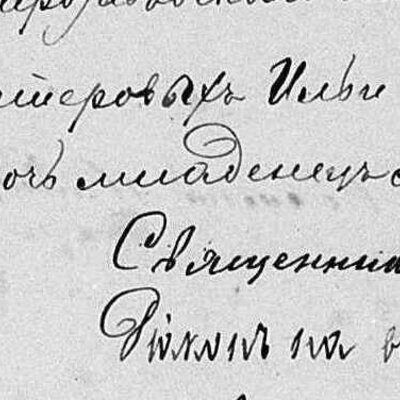 стеровыхъ Ильи
очь младенецъ
Священни
Дiаконъ на